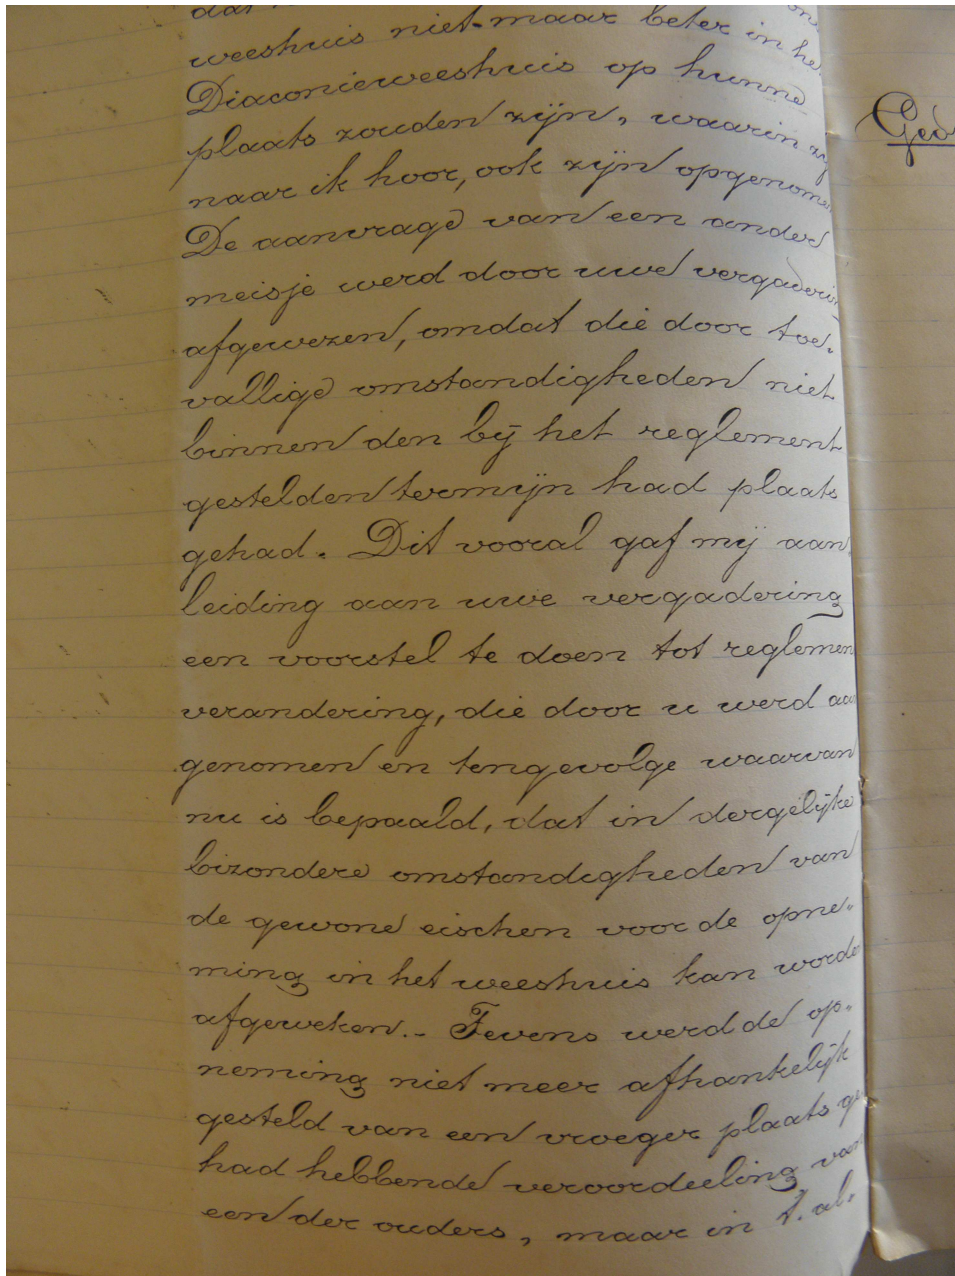 weeshuis niet maar beter in het
Diaconieweeshuis op hunne
plaats zouden zijn, waarin zij
naar ik hoor, ook zijn opgenomen
De aanvrage van een ander
meisje werd door uwe vergadering
afgewezen, omdat die door toe„
vallige omstandigheden niet
binnen den bij het reglement
gestelden termijn had plaats
gehad. Dit vooral gaf mij aan„
leiding aan uwe vergadering
een voorstel te doen tot reglemen
verandering, die door u werd aan
genomen en tengevolge waarvan
nu is bepaald, dat in dergelijke
bizondere omstandigheden van
de gewone eischen voor de opne„
ming in het weeshuis kan worden
afgeweken.- Tevens werd de op„
neming niet meer afhankelijk
gesteld van een vroeger plaats ge
had hebbende veroordeeling van
een der ouders, maar in 't al„